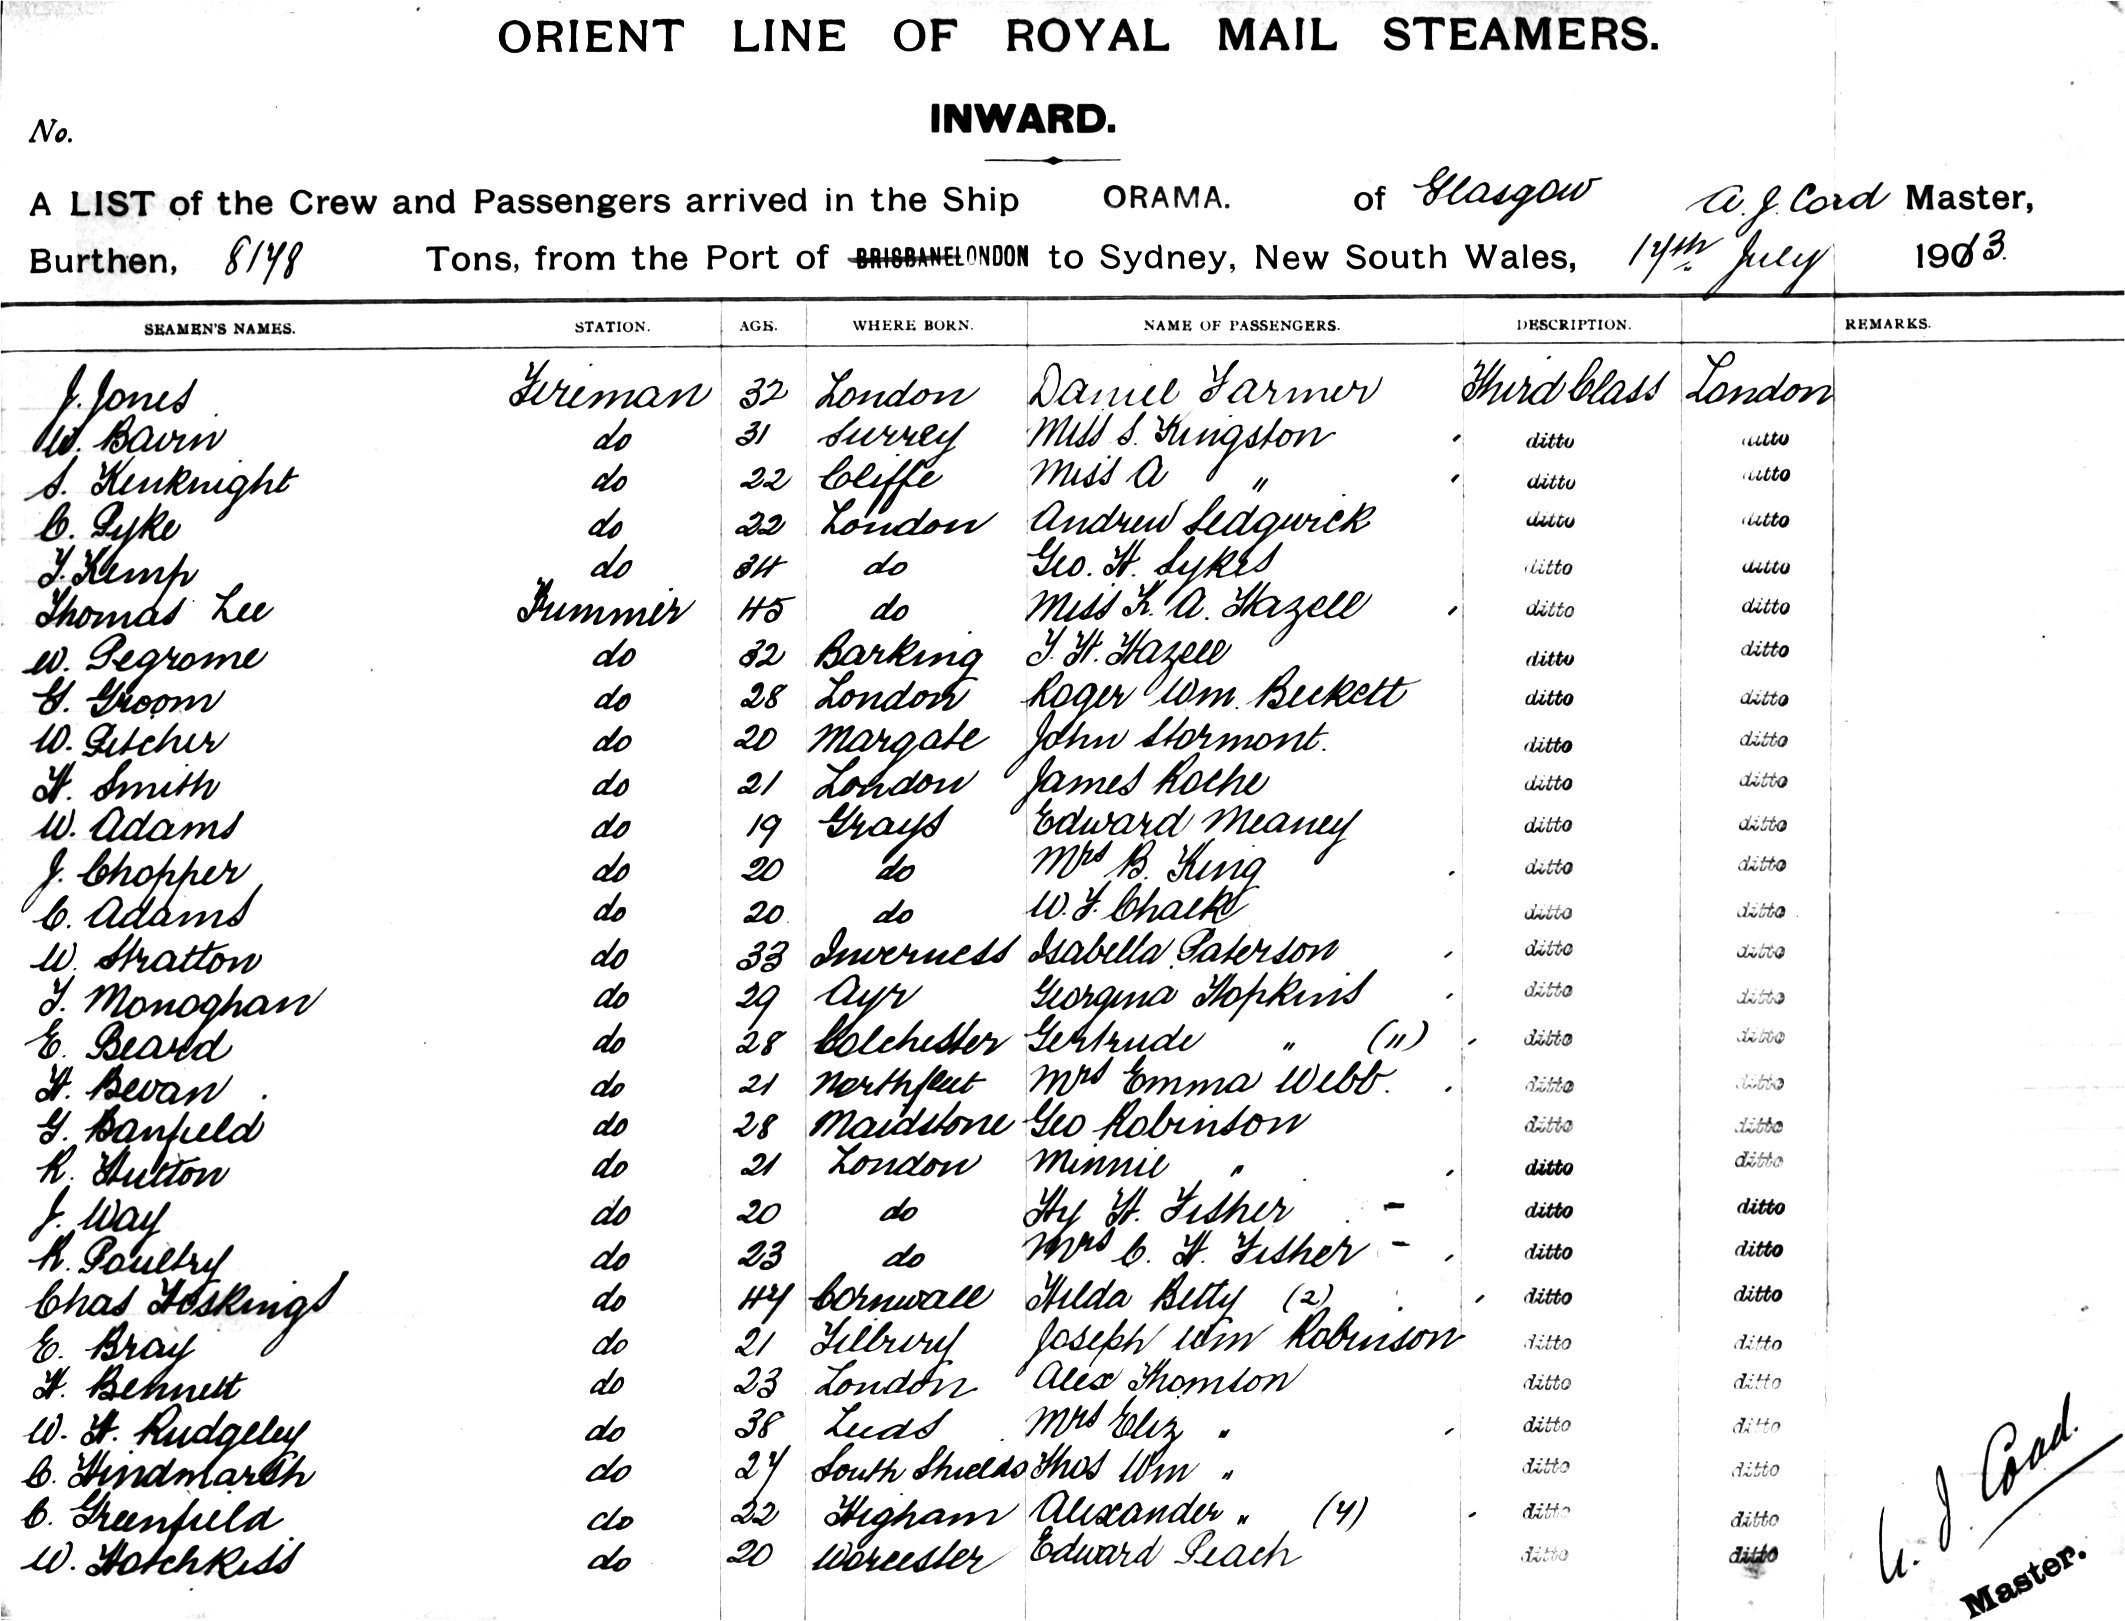 ORIENT LINE OF ROYAL MAIL STEAMERS.
INWARD.
No.
A LIST of the Crew and Passengers arrived in the Ship ORAMA. of Glasgow A. J. Coad Master,
Burthen, 8178 Tons, from the Port of BRISBANE LONDON to Sydney, New South Wales, 17th July 1913.
SEAMEN'S NAMES. STATION. AGE. WHERE BORN. NAME OF PASSENGERS. DESCRIPTION. REMARKS.
J. Jones Fireman 32 London Daniel Farmer Third Class London
W. Bavin do 31 Surrey Miss S. Kingston ditto ditto
S. Kenknight do 22 Cliffe Miss A " ditto ditto
C. Pyke do 22 London Andrew Sedgwick ditto ditto
T. Kemp do 34 do Geo. H. Sykes ditto ditto
Thomas Lee Trimmer 45 do Miss K. A. Hazell ditto ditto
W. Pegrome do 32 Barking T. H. Hazell ditto ditto
G. Groom do 28 London Roger Wm. Beckett ditto ditto
W. Pitcher do 20 Margate John Stormont. ditto ditto
H. Smith do 21 London James Roche ditto ditto
W. Adams do 19 Grays Edward Meaney ditto ditto
J. Chopper do 20 do Mrs B. King ditto ditto
C. Adams do 20 do W. F. Chalk ditto ditto
W. Stratton do 33 Inverness Isabella Paterson ditto ditto
T. Monoghan do 29 Ayr Georgina Hopkins ditto ditto
E. Beard do 28 Colchester Gertrude " (") ditto ditto
H. Bevan do 21 Northfleet Mrs Emma Webb. ditto ditto
G. Banfield do 28 Maidstone Geo Robinson ditto ditto
R. Hutton do 21 London Minnie " ditto ditto
J. Way do 20 do Hy H. Fisher - ditto ditto
R. Poultry do 23 do Mrs C. H. Fisher - ditto ditto
Chas Hoskings do 47 Cornwall Hilda Betty (2) ditto ditto
E. Bray do 21 Tilbury Joseph Wm Robinson ditto ditto
H. Bennett do 23 London Alex Thomson ditto ditto
W. H. Rudgeley do 38 Leeds Mrs Eliz " ditto ditto
C. Hindmarsh do 27 South Shields Thos Wm " ditto ditto
C. Greenfield do 22 Higham Alexander " (4) ditto ditto
W. Hotchkiss do 20 Worcester Edward Peach ditto ditto
A. J. Coad.
Master.